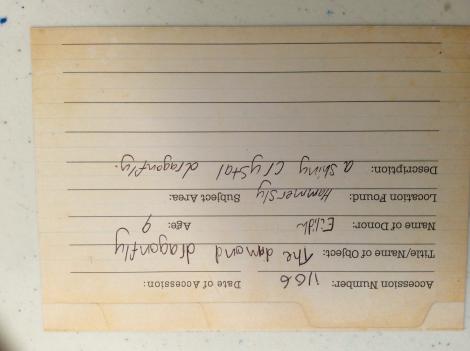 Accession Number: 1166 Date of Accession:
Title/Name of Object: The damond dragonfly
Name of Donor: Eilidh Age: 9
Location Found: Hammersly Subject Area:
Description: a shiny crystal dragonfly.